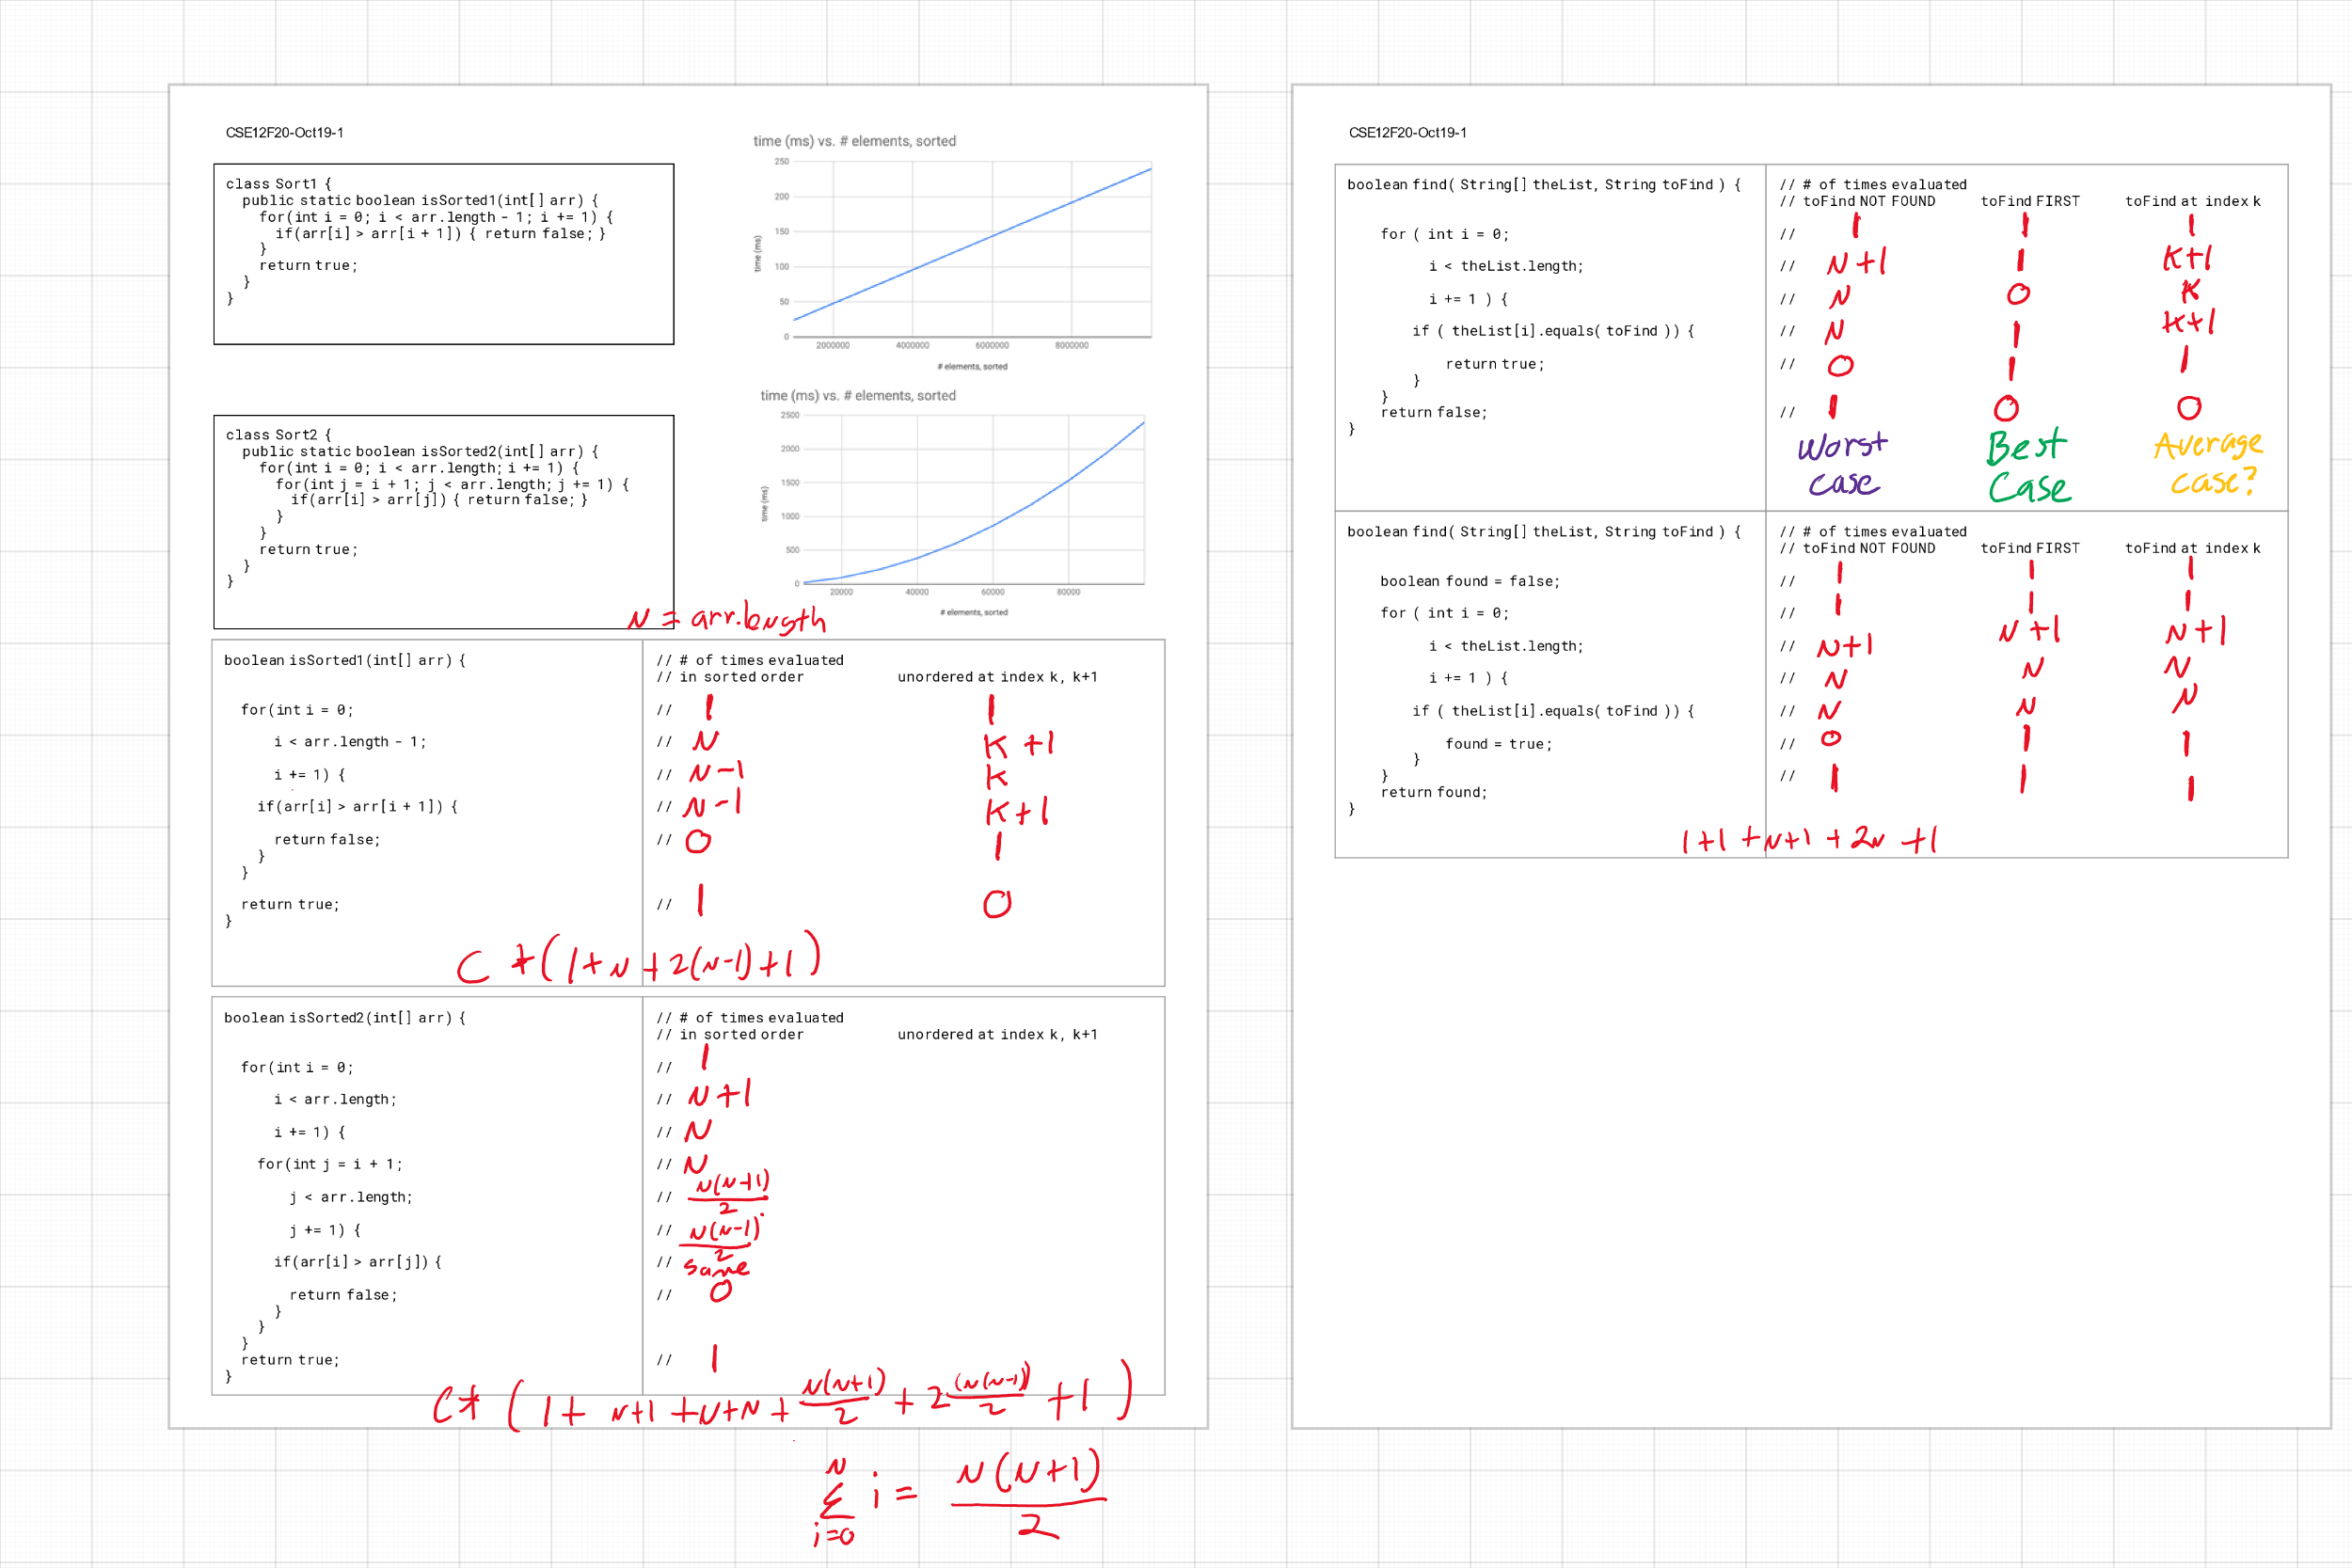 CSE12F20-Oct19-1
class Sort1 {
public static boolean isSorted1(int[] arr) {
for(int i = 0; i < arr.length - 1; i += 1) {
if(arr[i] > arr[i + 1]) { return false; }
}
return true;
}
}
time (ms) vs. # elements, sorted
250
200
150
100
50
0
time (ms)
2000000 4000000 6000000 8000000
# elements, sorted
class Sort2 {
public static boolean isSorted2(int[] arr) {
for(int i = 0; i < arr.length; i += 1) {
for(int j = i + 1; j < arr.length; j += 1) {
if(arr[i] > arr[j]) { return false; }
}
}
return true;
}
}
time (ms) vs. # elements, sorted
2500
2000
1500
1000
500
0
time (ms)
20000 40000 60000 80000
# elements, sorted
N = arr.length
boolean isSorted1(int[] arr) { // # of times evaluated
// in sorted order unordered at index k, k+1
for(int i = 0; // 1 1
i < arr.length - 1; // N K+1
i += 1) { // N-1 K
if(arr[i] > arr[i + 1]) { // N-1 K+1
return false; // 0 1
}
}
return true; // 1 0
}
C * (1+N+2(N-1)+1)
boolean isSorted2(int[] arr) { // # of times evaluated
// in sorted order unordered at index k, k+1
for(int i = 0; // 1
i < arr.length; // N+1
i += 1) { // N
for(int j = i + 1; // N
j < arr.length; // N(N+1)/2
j += 1) { // N(N-1)/2
if(arr[i] > arr[j]) { // same
return false; // 0
}
}
}
return true; // 1
}
C * (1 + N+1 + N+N + N(N+1)/2 + 2(N(N-1))/2 + 1)
N
Σ i = N(N+1)/2
i=0
CSE12F20-Oct19-1
boolean find( String[] theList, String toFind ) { // # of times evaluated
// toFind NOT FOUND toFind FIRST toFind at index k
for ( int i = 0; // 1 1 1
i < theList.length; // N+1 1 K+1
i += 1 ) { // N 0 K
if ( theList[i].equals( toFind )) { // N 1 K+1
return true; // 0 1 1
}
}
return false; // 1 0 0
}
Worst Best Average
case Case case?
boolean find( String[] theList, String toFind ) { // # of times evaluated
// toFind NOT FOUND toFind FIRST toFind at index k
boolean found = false; // 1 1 1
for ( int i = 0; // 1 1 1
i < theList.length; // N+1 N+1 N+1
i += 1 ) { // N N N
if ( theList[i].equals( toFind )) { // N N N
found = true; // 0 1 1
}
}
return found; // 1 1 1
}
1+1+N+1+2N+1